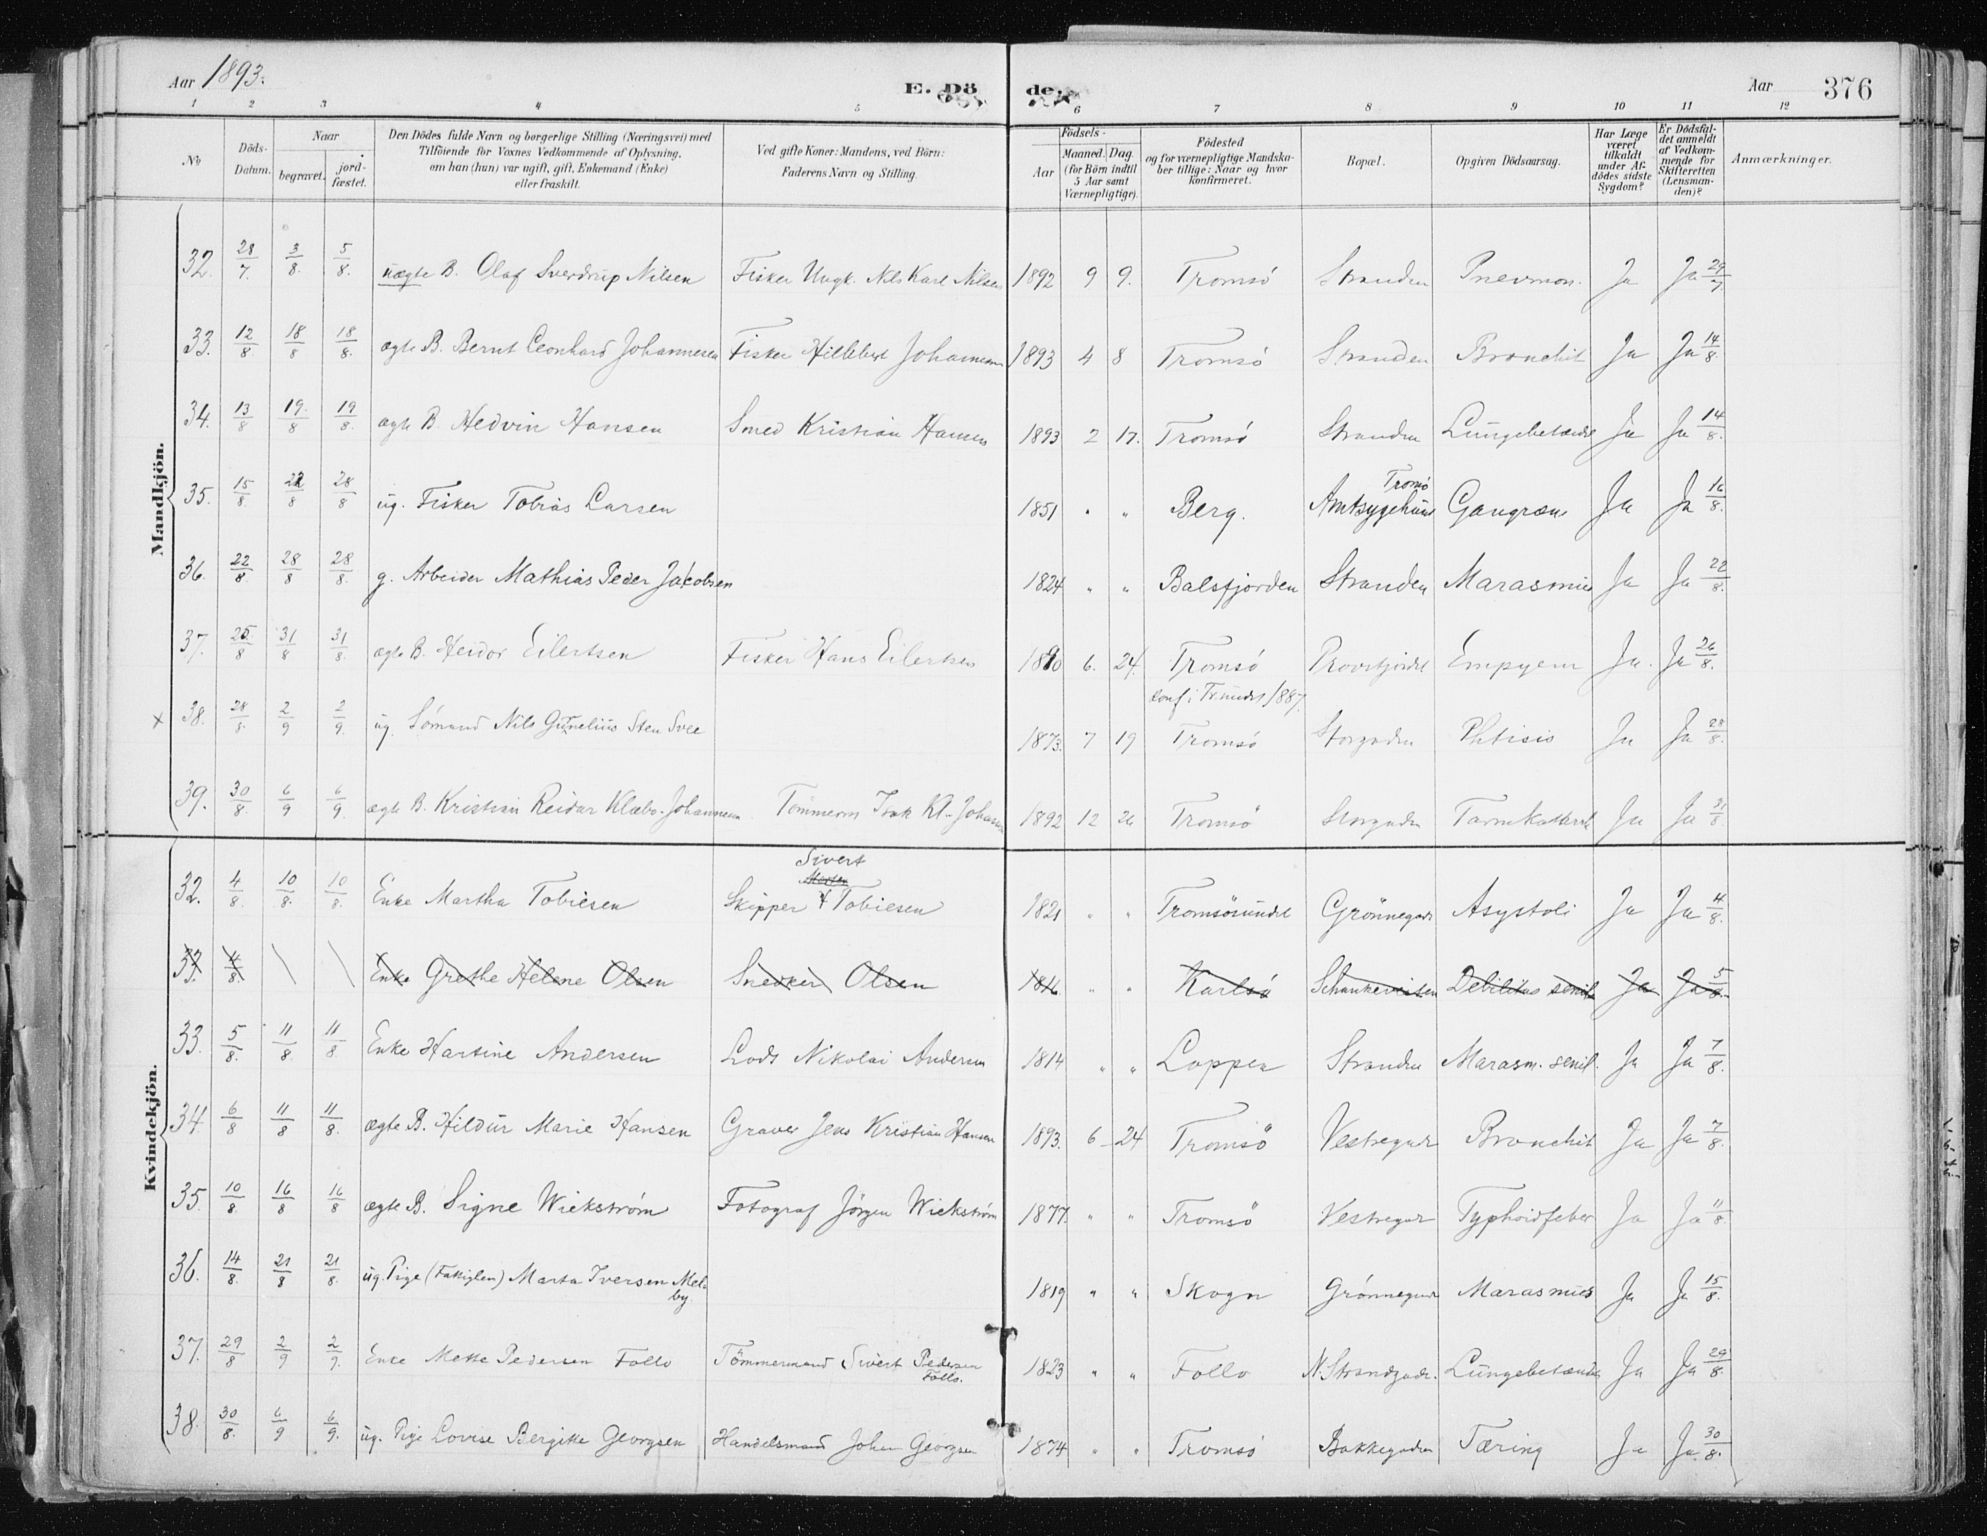 Aar 1893.
E. Döde.
Aar 376
1 2 3 4 5 6 7 8 9 10 11 12
No
Döds-Datum.
Naar
begravet.
jordfæstet.
Den Dödes fulde Navn og borgerlige Stilling (Næringsvei) med
Tilföiende for Voxnes Vedkommende af Oplysning,
om han (hun) var ugift, gift, Enkemand (Enke)
eller fraskilt.
Ved gifte Koner: Mandens, ved Börn:
Faderens Navn og Stilling.
Födsels-
Aar
Maaned. Dag
(for Börn indtil
5 Aar samt
Værnepligtige).
Födested
og for værnepligtige Mandskaber tillige: Naar og hvor
konfirmeret.
Bopæl.
Opgiven Dödsaarsag.
Har Læge været tilkaldt under Afdödes sidste Sygdom?
Er Dödsfaldet anmeldt af Vedkommende for Skifteretten (Lensmanden)?
Anmærkninger.
Mandkjön.
32. 28/7. 3/8. 5/8. uægte B. Olaf Sverdrup Nilsen Fisker Ungk. Nils Karl Nilsen 1892 9 9. Tromsö Stranden Pnevmon. Ja Ja 29/7
33. 12/8. 18/8 18/8. ægte B. Bernt Leonhard Johannesen Fisker Hillebert Johannesen 1893 4 8 Tromsö Stranden Bronchit Ja Ja 14/8
34. 13/8 19/8 19/8. ægte B. Hedvin Hansen Smed Kristian Hansen 1893 2 17. Tromsö Stranden Lungebetændel Ja Ja 14/8.
35. 15/8. 28/8 28/8 ug. Fisker Tobias Larsen 1851 " " Berg. Tromsö Amtsygehuus Gangræn Ja Ja 16/8.
36. 22/8 28/8 28/8. g. Arbeider Mathias Peder Jacobsen 1824 " " Balsfjorden Stranden Marasmus Ja Ja 22/8.
37. 25/8 31/8 31/8. ægte B. Heidor Eilertsen Fisker Hans Eilertsen 1890 6. 24. Tromsö Empyem Ja. Ja 26/8.
x 38. 28/8. 2/9 2/9. ug. Sömand Nils Sten Svee 1873. 7 19 conf. i 1887. Tromsö Storgaden Phtisis Ja Ja 28/8.
39. 30/8. 6/9 6/9. ægte B. Kristian Reidar Klæbo-Johannesen Tömmerm Isak Kl-Johans 1892 12 26 Tromsö Storgaden Tarmkatarrh Ja Ja 31/8.
Kvindekjön.
32. 4/8. 10/8. 10/8. Enke Martha Tobiesen Skipper Sivert Morten Tobiesen 1821 " " Tromsösundet Grönnegad Asystoli Ja Ja 4/8.
33. 4/8. Enke Grethe Helene Olsen Snedker Olsen 1816. " " Karlsö Debilitas senil Ja Ja 5/8.
33. 5/8. 11/8 11/8. Enke Hartine Andersen Lods Nikolai Andersen 1814 " " Loppen Stranden Marasm. senil. Ja Ja 7/8.
34 6/8 11/8 11/8. ægte B. Hildur Marie Hansen Graver Jens Kristian Hansen 1893. 6 24 Tromsö Vestregad Bronchit Ja Ja 7/8.
35. 10/8. 16/8 16/8 ægte B. Signe Wickström Fotograf Jörgen Wickström 1877. " " Tromsö Vestregad Typhoidfeber Ja Ja 11/8.
36. 14/8. 21/8 21/8. ug. Pige (Fattiglem) Marta Iversen Melby. 1819 " " Skogn Grönnegad Marasmus Ja Ja 15/8.
37. 29/8 2/9 2/9. Enke Mette Pedersen Follo Tömmermand Sivert Pedersen Follo. 1823 " " Follo N. Strandgad. Lungebetændel Ja Ja 29/8.
38. 30/8. 6/9 6/9. ug. Pige Lovise Bergitte Georgsen Handelsmand Johan Georgsen 1874 " " Tromsö Bakkegaden Tæring Ja Ja 30/8.